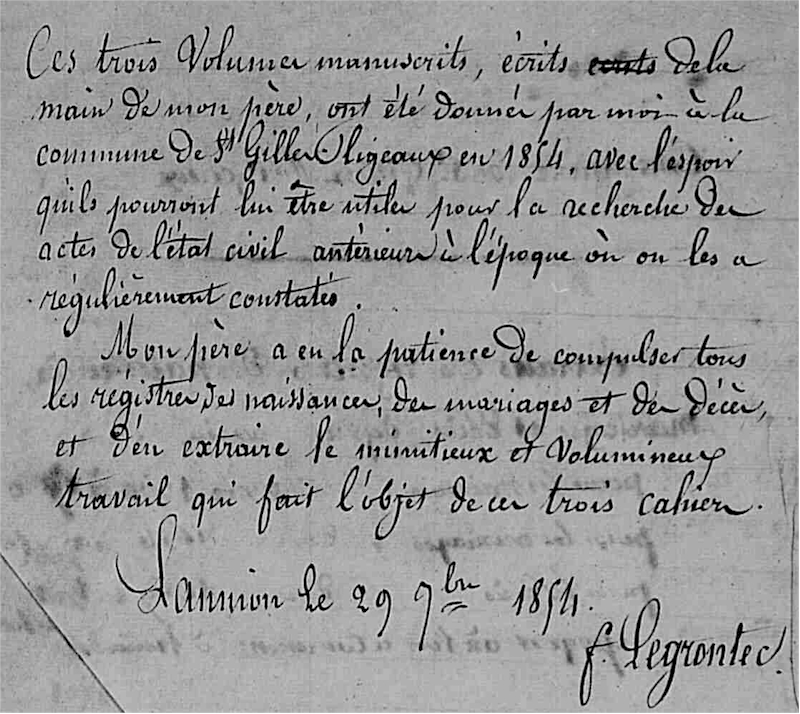 Ces trois Volumes manuscrits, écrits ecrits de la
main de mon père, ont été donnés par moi à la
commune de St Gilles Pligeaux en 1854, avec l'espoir
qu'ils pourront lui être utiles pour la recherche des
actes de l'état civil antérieurs à l'époque où on les a
régulièrement constatés.
Mon père a eu la patience de compulser tous
les régistres des naissances, des mariages et des décès,
et d'en extraire le minitieux et Volumineux
travail qui fait l'objet de ces trois cahiers.
Lannion le 29 7bre 1854.
f. Legrontec.